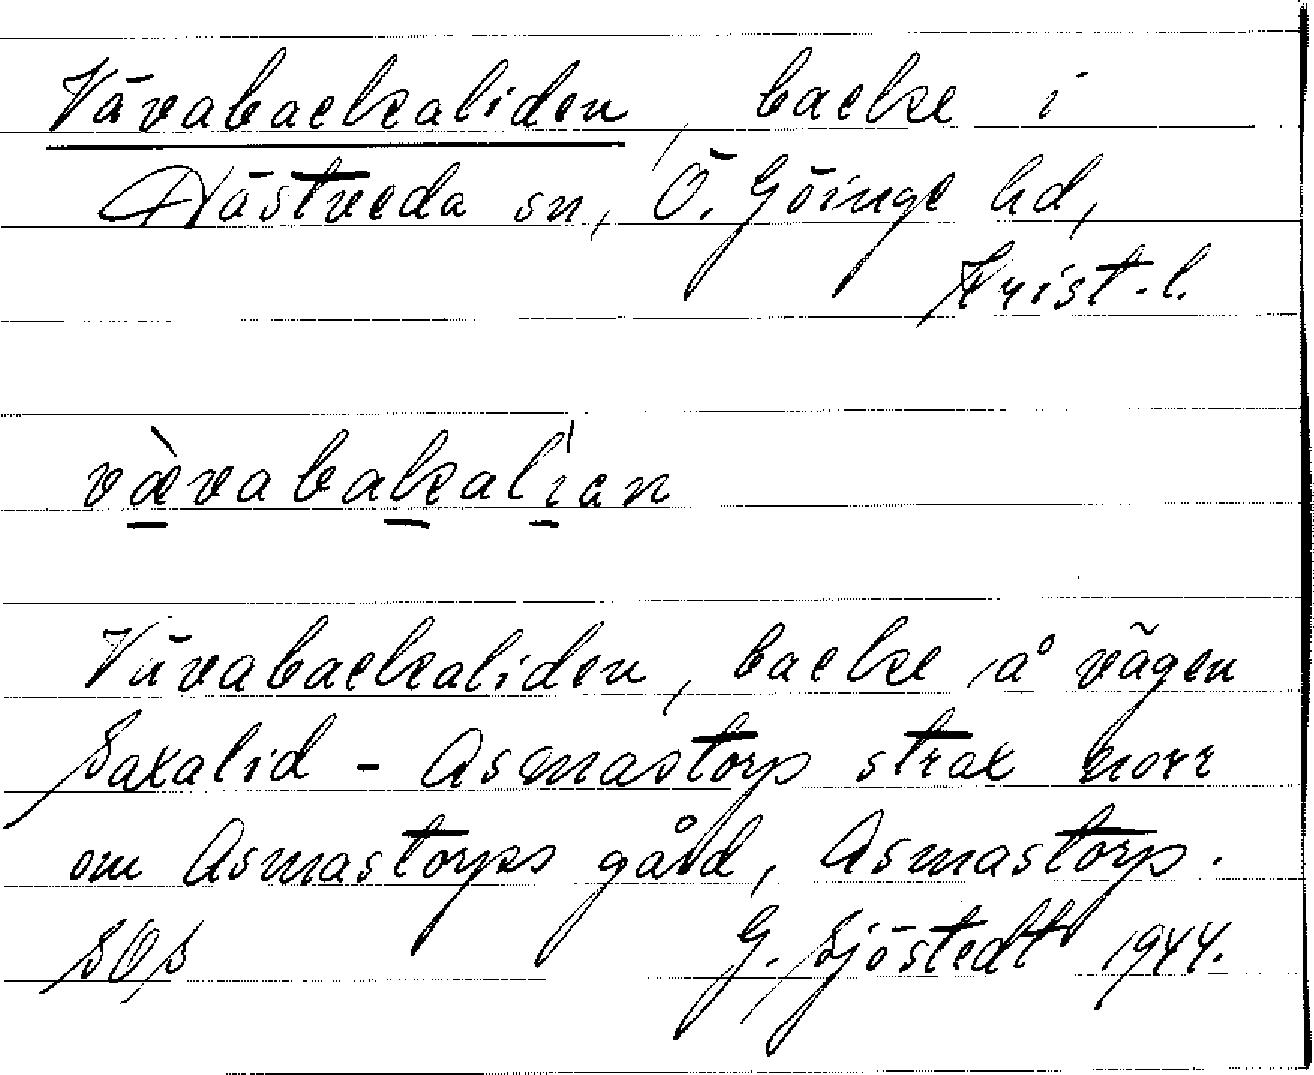 Vävabackaliden, backe i
Hästveda sn, Ö. Göinge hd,
Krist. l.
vævabakalian
Vävabackaliden, backe å vägen
Saxalid - Asmastorp strax norr
om Asmastorps gård, Asmastorp.
SOS G. Sjöstedt 1944.